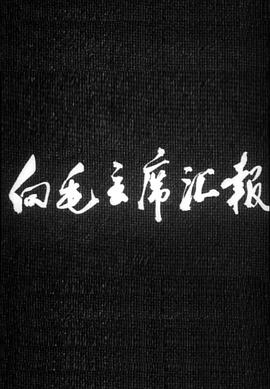 向毛主席汇报